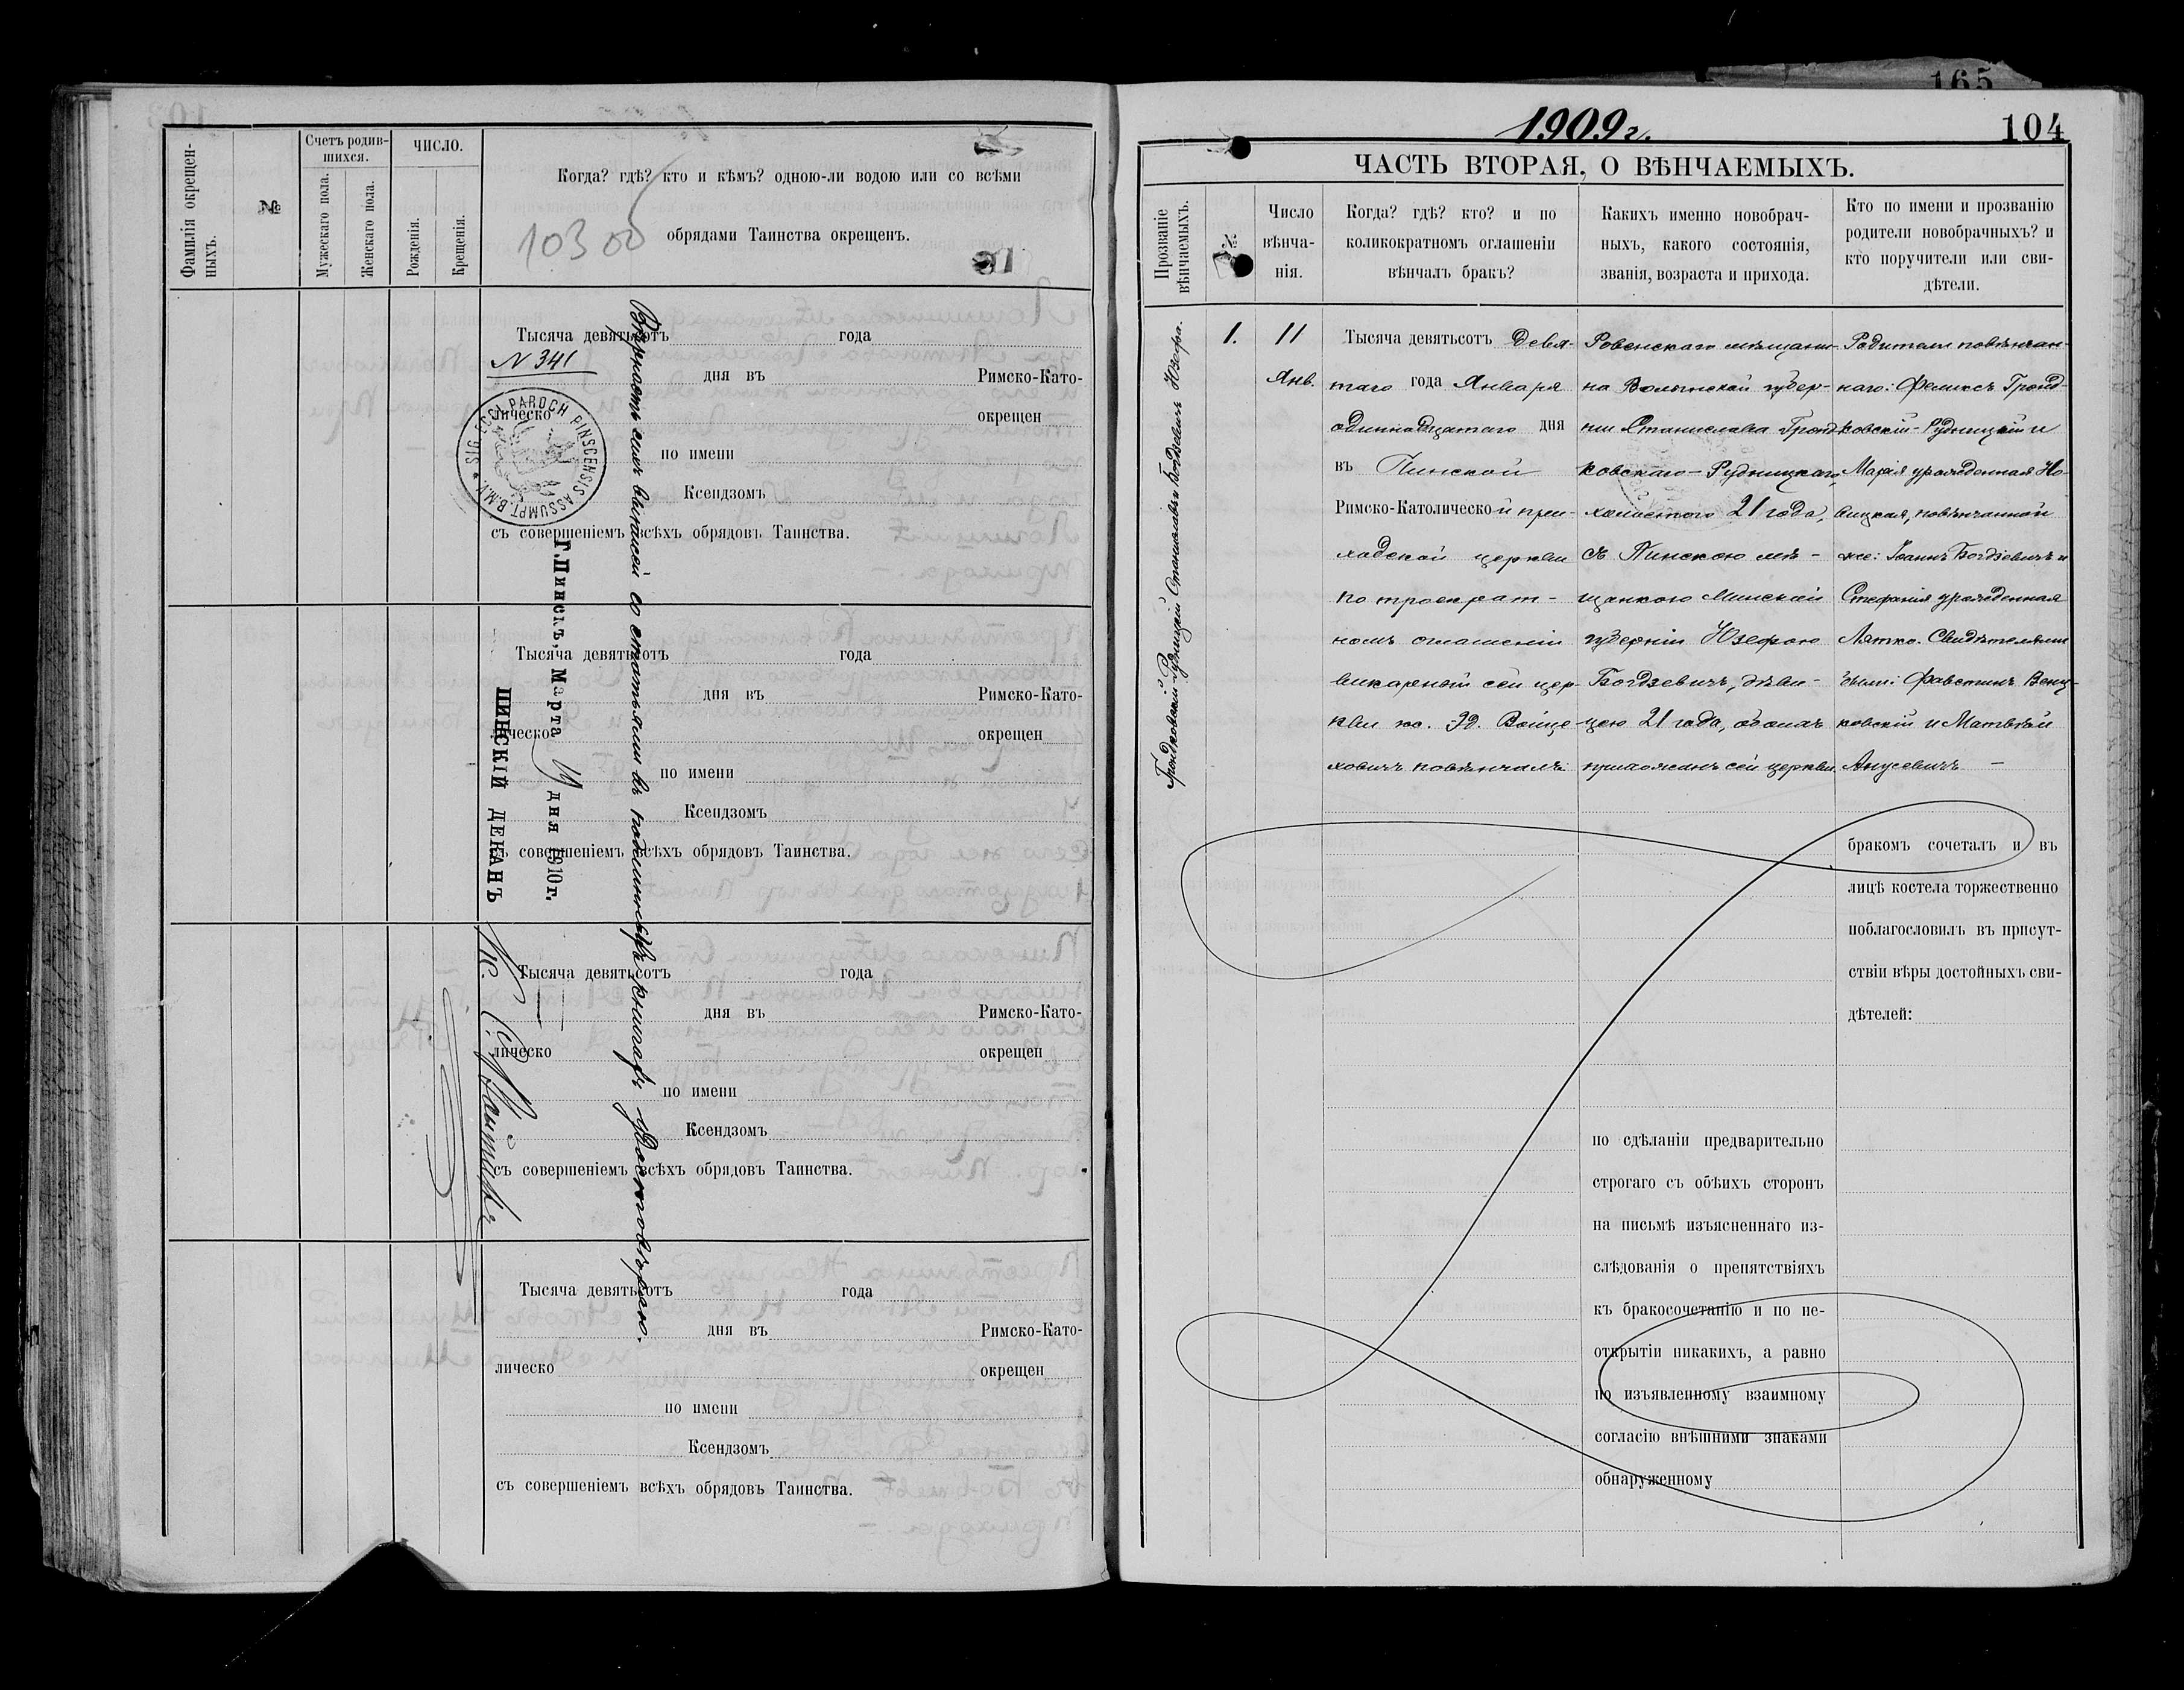 Фамилія окрещен-
ныхъ.
№
Счетъ родив-
шихся.
Мужескаго пола.
Женскаго пола.
ЧИСЛО.
Рожденія.
Крещенія.
Когда? гдѣ? кто и кѣмъ? одною-ли водою или со всѣми
обрядами Таинства окрещенъ.
10300
Тысяча девятьсотъ года
N 341
дня въ Римско-Като-
лическо окрещен
по имени
Ксендзомъ
съ совершеніемъ всѣхъ обрядовъ Таинства.
SIG. ECCL. PAROCH. PINSCENSIS ASSUMPT. B.M.V.
Тысяча девятьсотъ года
дня въ Римско-Като-
лическо окрещен
по имени
Ксендзомъ
съ совершеніемъ всѣхъ обрядовъ Таинства.
Тысяча девятьсотъ года
дня въ Римско-Като-
лическо окрещен
по имени
Ксендзомъ
съ совершеніемъ всѣхъ обрядовъ Таинства.
Тысяча девятьсотъ года
дня въ Римско-Като-
лическо окрещен
по имени
Ксендзомъ
съ совершеніемъ всѣхъ обрядовъ Таинства.
Вѣрность сихъ выписей со статьями въ подлинныхъ книгахъ удостовѣряю.
Г. Пинскъ, Марта дня 1910 г.
ПИНСКІЙ ДЕКАНЪ
Кс.
165
1909 г.
104
ЧАСТЬ ВТОРАЯ, О ВѢНЧАЕМЫХЪ.
Прозваніе
вѣнчаемыхъ.
№
Число
вѣнча-
нія.
Когда? гдѣ? кто? и по
коликократномъ оглашеніи
вѣнчалъ бракъ?
Какихъ именно новобрач-
ныхъ, какого состоянія,
званія, возраста и прихода.
Кто по имени и прозванію
родители новобрачныхъ? и
кто поручители или сви-
дѣтели.
Грондковскій-Рудницкій Станиславъ и Богдзевичъ Юзефа.
1.
11
Янв.
Тысяча девятьсотъ Девя-
таго года Января
одиннадцатаго дня
въ Пинской
Римско-Католической при-
ходской церкви
по троекрат-
номъ оглашеніи
викарный сей цер-
кви кс. Э. Войце-
ховичъ повѣнчалъ
Ровенскаго мѣщани-
на Волынской губер-
ніи Станислава Гронд-
ковскаго-Рудницкаго,
холостого 21 года,
съ Пинскою мѣ-
щанкою Минской
губерніи Юзефою
Богдзевичъ, дѣви-
цею 21 года, обоихъ
прихожанъ сей церкви.
Родители повѣнчан-
наго: Феликсъ Гронд-
ковскій-Рудницкій и
Марія урожденная Но-
вицкая, повѣнчанной
же: Іоаннъ Богдзевичъ и
Стефанія урожденная
Лятко. Свидѣтелями
были: Фавстинъ Венц-
ковскій и Матвѣй
Анусевичъ —
бракомъ сочеталъ и въ
лицѣ костела торжественно
поблагословилъ въ присут-
ствіи вѣры достойныхъ сви-
дѣтелей:
по сдѣланіи предварительно
строгаго съ обѣихъ сторонъ
на письмѣ изъясненнаго из-
слѣдованія о препятствіяхъ
къ бракосочетанію и по не-
открытіи никакихъ, а равно
по изъявленному взаимному
согласію внѣшними знаками
обнаруженному